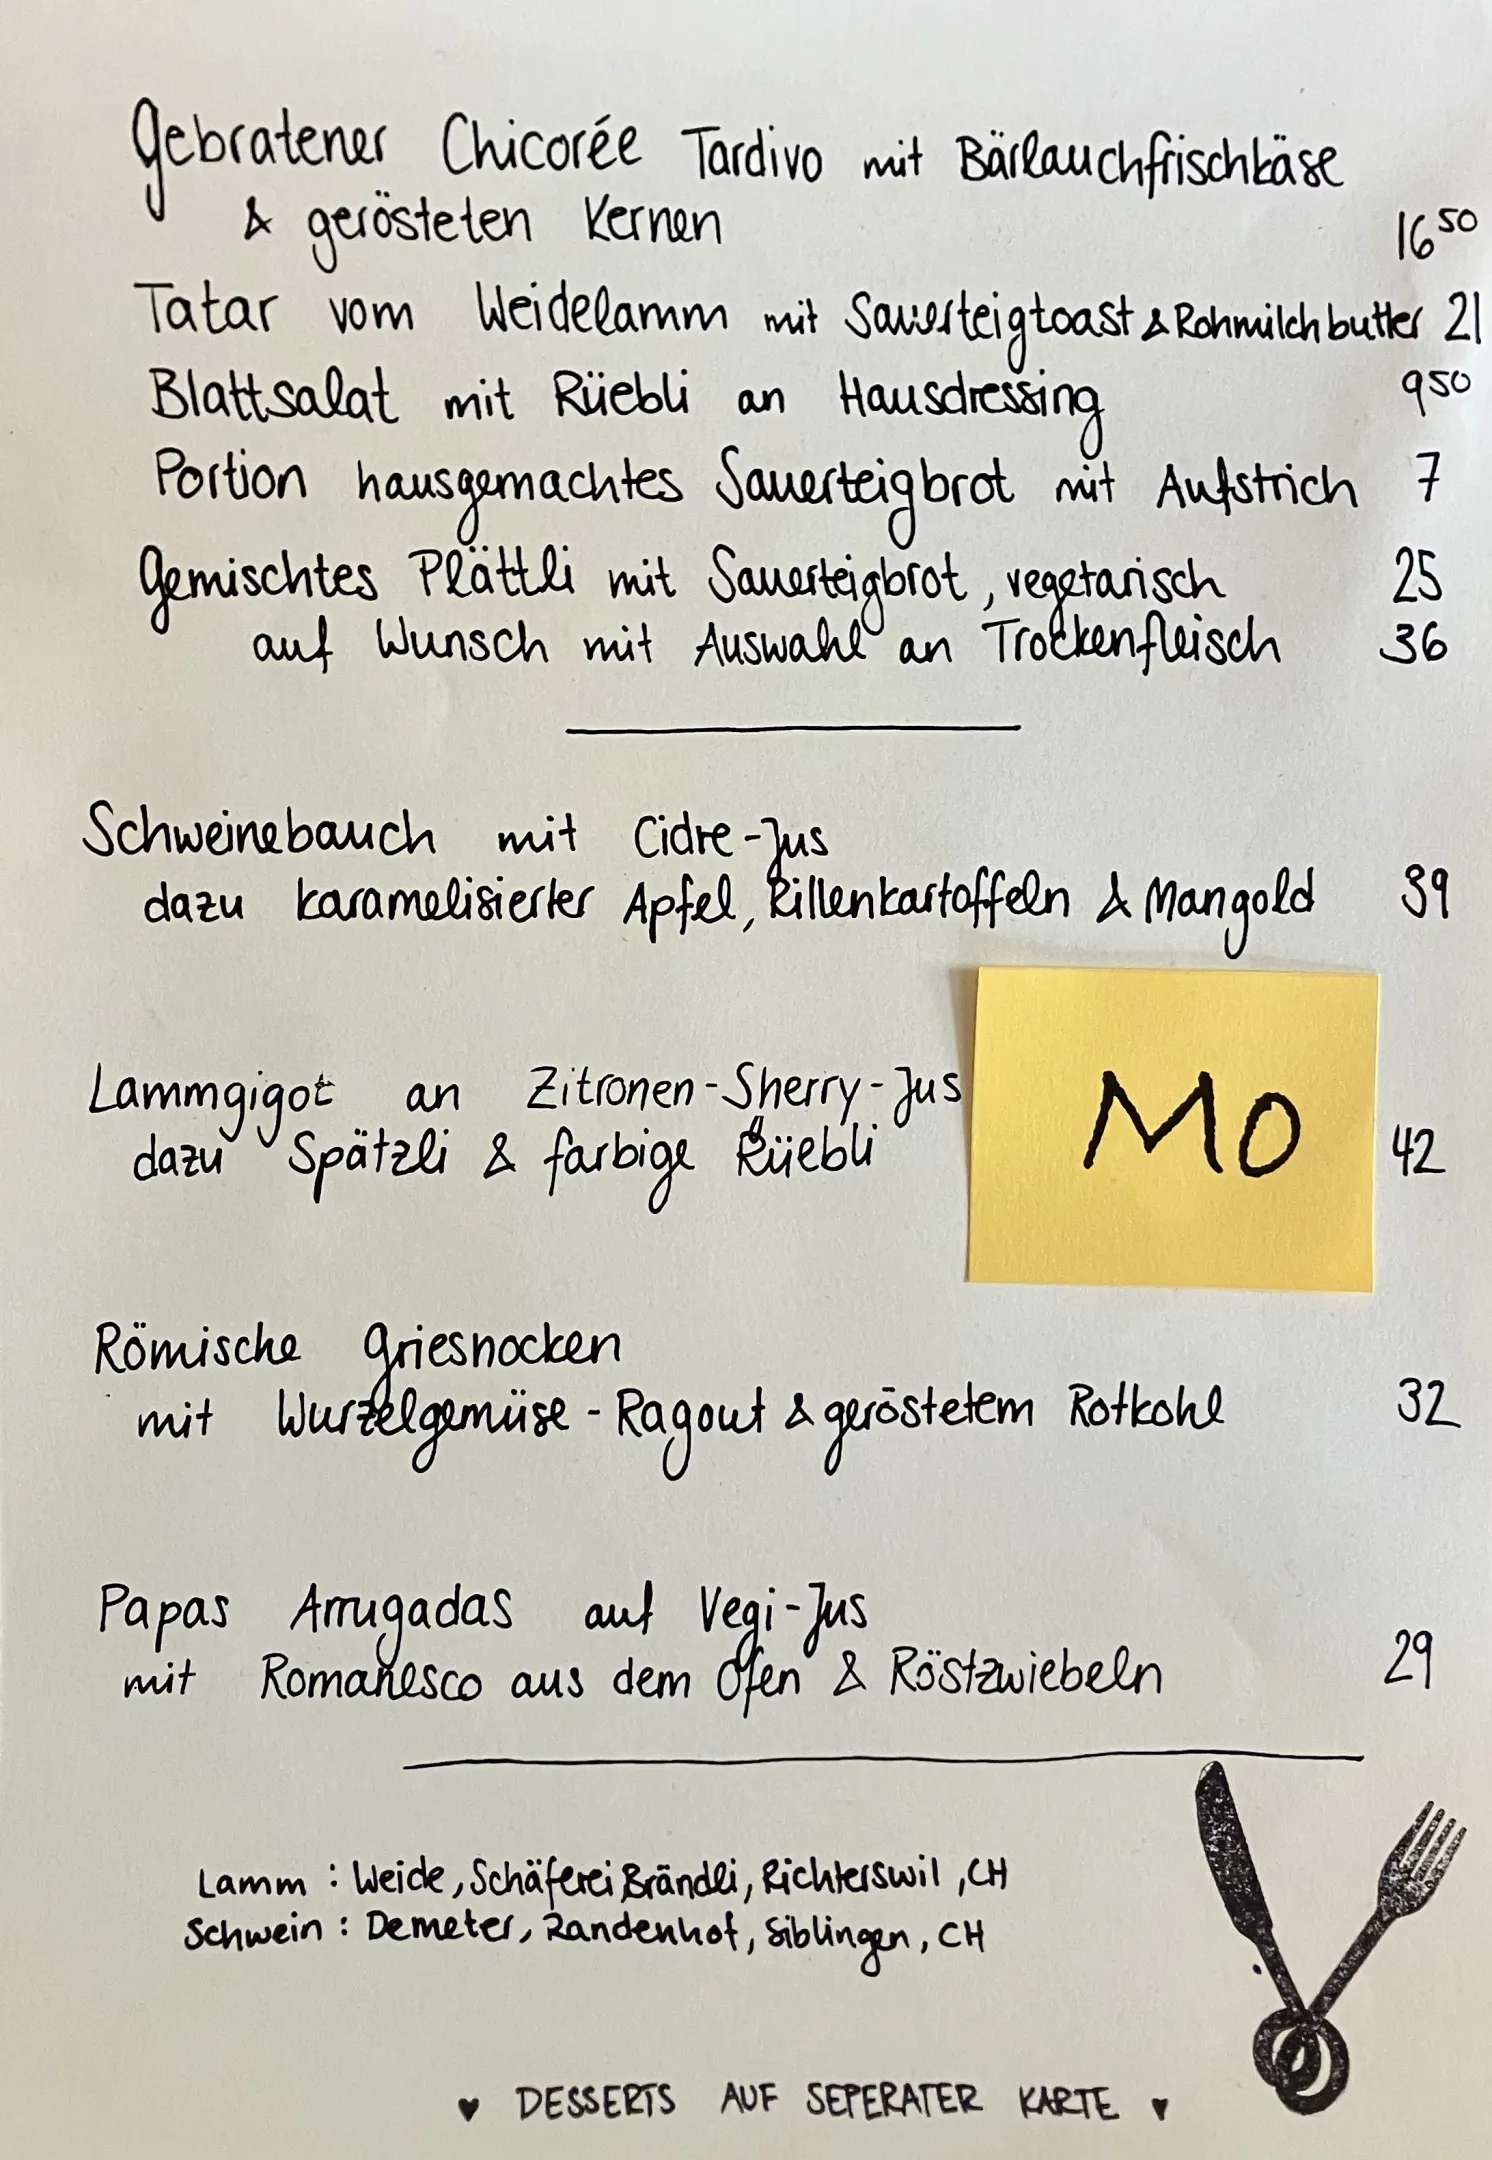 Gebratener Chicorée Tardivo mit Bärlauchfrischkäse
& gerösteten Kernen 16 50
Tatar vom Weidelamm mit Sauerteigtoast & Rohmilchbutter 21
Blattsalat mit Rüebli an Hausdressing 9 50
Portion hausgemachtes Sauerteigbrot mit Aufstrich 7
Gemischtes Plättli mit Sauerteigbrot, vegetarisch 25
auf Wunsch mit Auswahl an Trockenfleisch 36
Schweinebauch mit Cidre-Jus
dazu karamelisierter Apfel, Rillenkartoffeln & Mangold 39
Lammgigot an Zitronen-Sherry-Jus
dazu Spätzli & farbige Rüebli 42
Mo
Römische Griesnocken
mit Wurzelgemüse-Ragout & geröstetem Rotkohl 32
Papas Arrugadas auf Vegi-Jus
mit Romanesco aus dem Ofen & Röstzwiebeln 29
Lamm : Weide, Schäferei Brändli, Richterswil, CH
Schwein : Demeter, Randenhof, Siblingen, CH
♥ DESSERTS AUF SEPERATER KARTE ♥